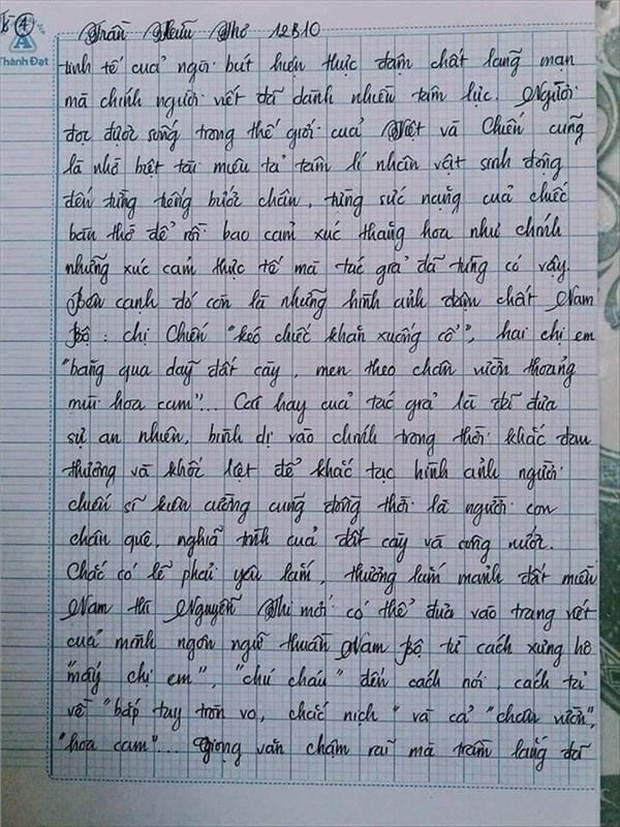 4
Thành Đạt
Trần Hữu Thơ 12B10
tinh tế cuả ngòi bút hiện thực đậm chất lãng mạn
mà chính người viết đã dành nhiều tâm lực. Người
đọc được sống trong thế giới cuả Việt và Chiến cũng
là nhờ biệt tài miêu tả tâm lí nhân vật sinh động
đến từng tiếng bước chân, từng sức nặng cuả chiếc
bàn thờ để rồi bao cảm xúc thăng hoa như chính
những xúc cảm thực tế mà tác giả đã từng có vậy.
Bên cạnh đó còn là những hình ảnh đậm chất Nam
Bộ : chị Chiến "kéo chiếc khăn xuống cổ", hai chị em
"băng qua dãy đất cày, men theo chân vườn thoảng
mùi hoa cam"... Cái hay cuả tác giả là đã đưa
sự an nhiên, bình dị vào chính trong thời khắc đau
thương và khốc liệt để khắc tạc hình ảnh người
chiến sĩ kiên cường cũng đồng thời là người con
chân quê, nghiã tình cuả đất cày và ruộng nước.
Chắc có lẽ phải yêu lắm, thương lắm mảnh đất miền
Nam thì Nguyễn Thi mới có thể đưa vào trang viết
cuả mình ngôn ngữ thuần Nam Bộ từ cách xưng hô
"mấy chị em", "chú cháu" đến cách nói, cách tả
về "bắp tay tròn vo, chắc nịch" và cả "chân vườn",
"hoa cam"... Giọng văn chậm rãi mà trầm lắng đã